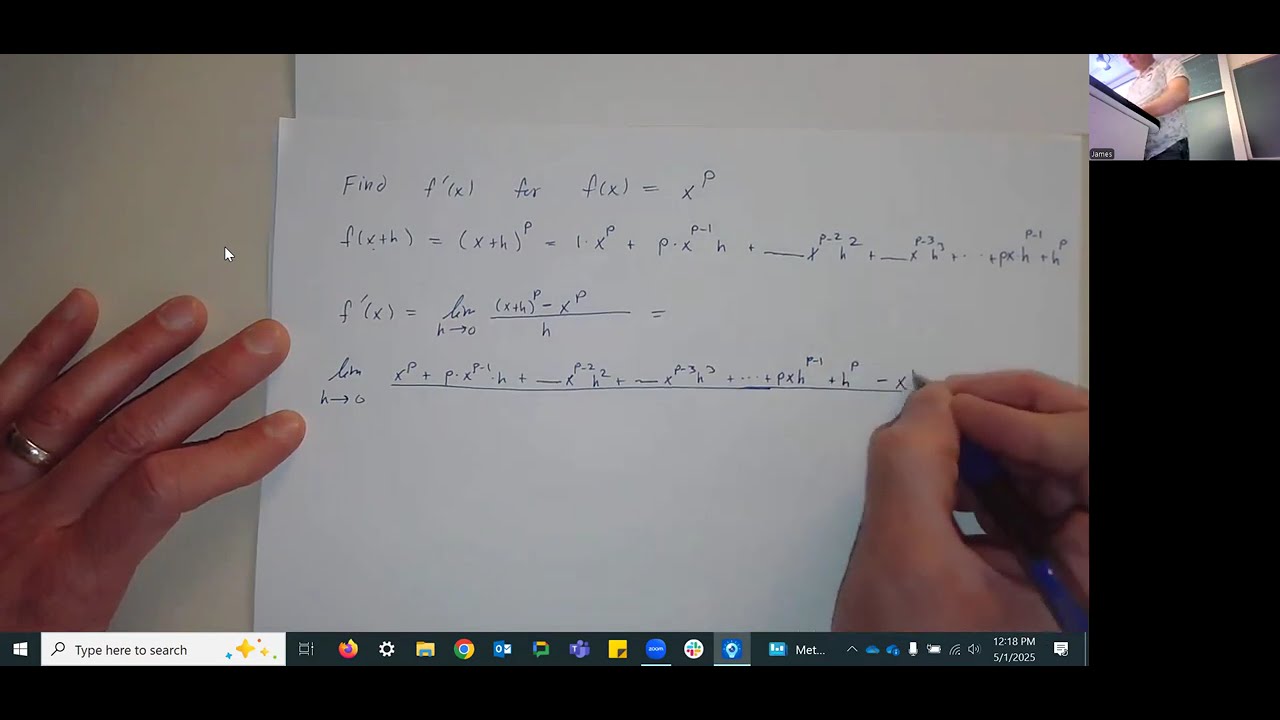 James
Find f'(x) for f(x) = x^p
f(x+h) = (x+h)^p = 1·x^p + p·x^{p-1} h + __ x^{p-2} h^2 + __ x^{p-3} h^3 + ··· + px·h^{p-1} + h^p
f'(x) = lim_{h→0} ((x+h)^p - x^p)/h =
lim_{h→0} x^p + p·x^{p-1}·h + __ x^{p-2} h^2 + __ x^{p-3} h^3 + ··· + pxh^{p-1} + h^p - x
Type here to search
zoom
Met...
12:18 PM
5/1/2025